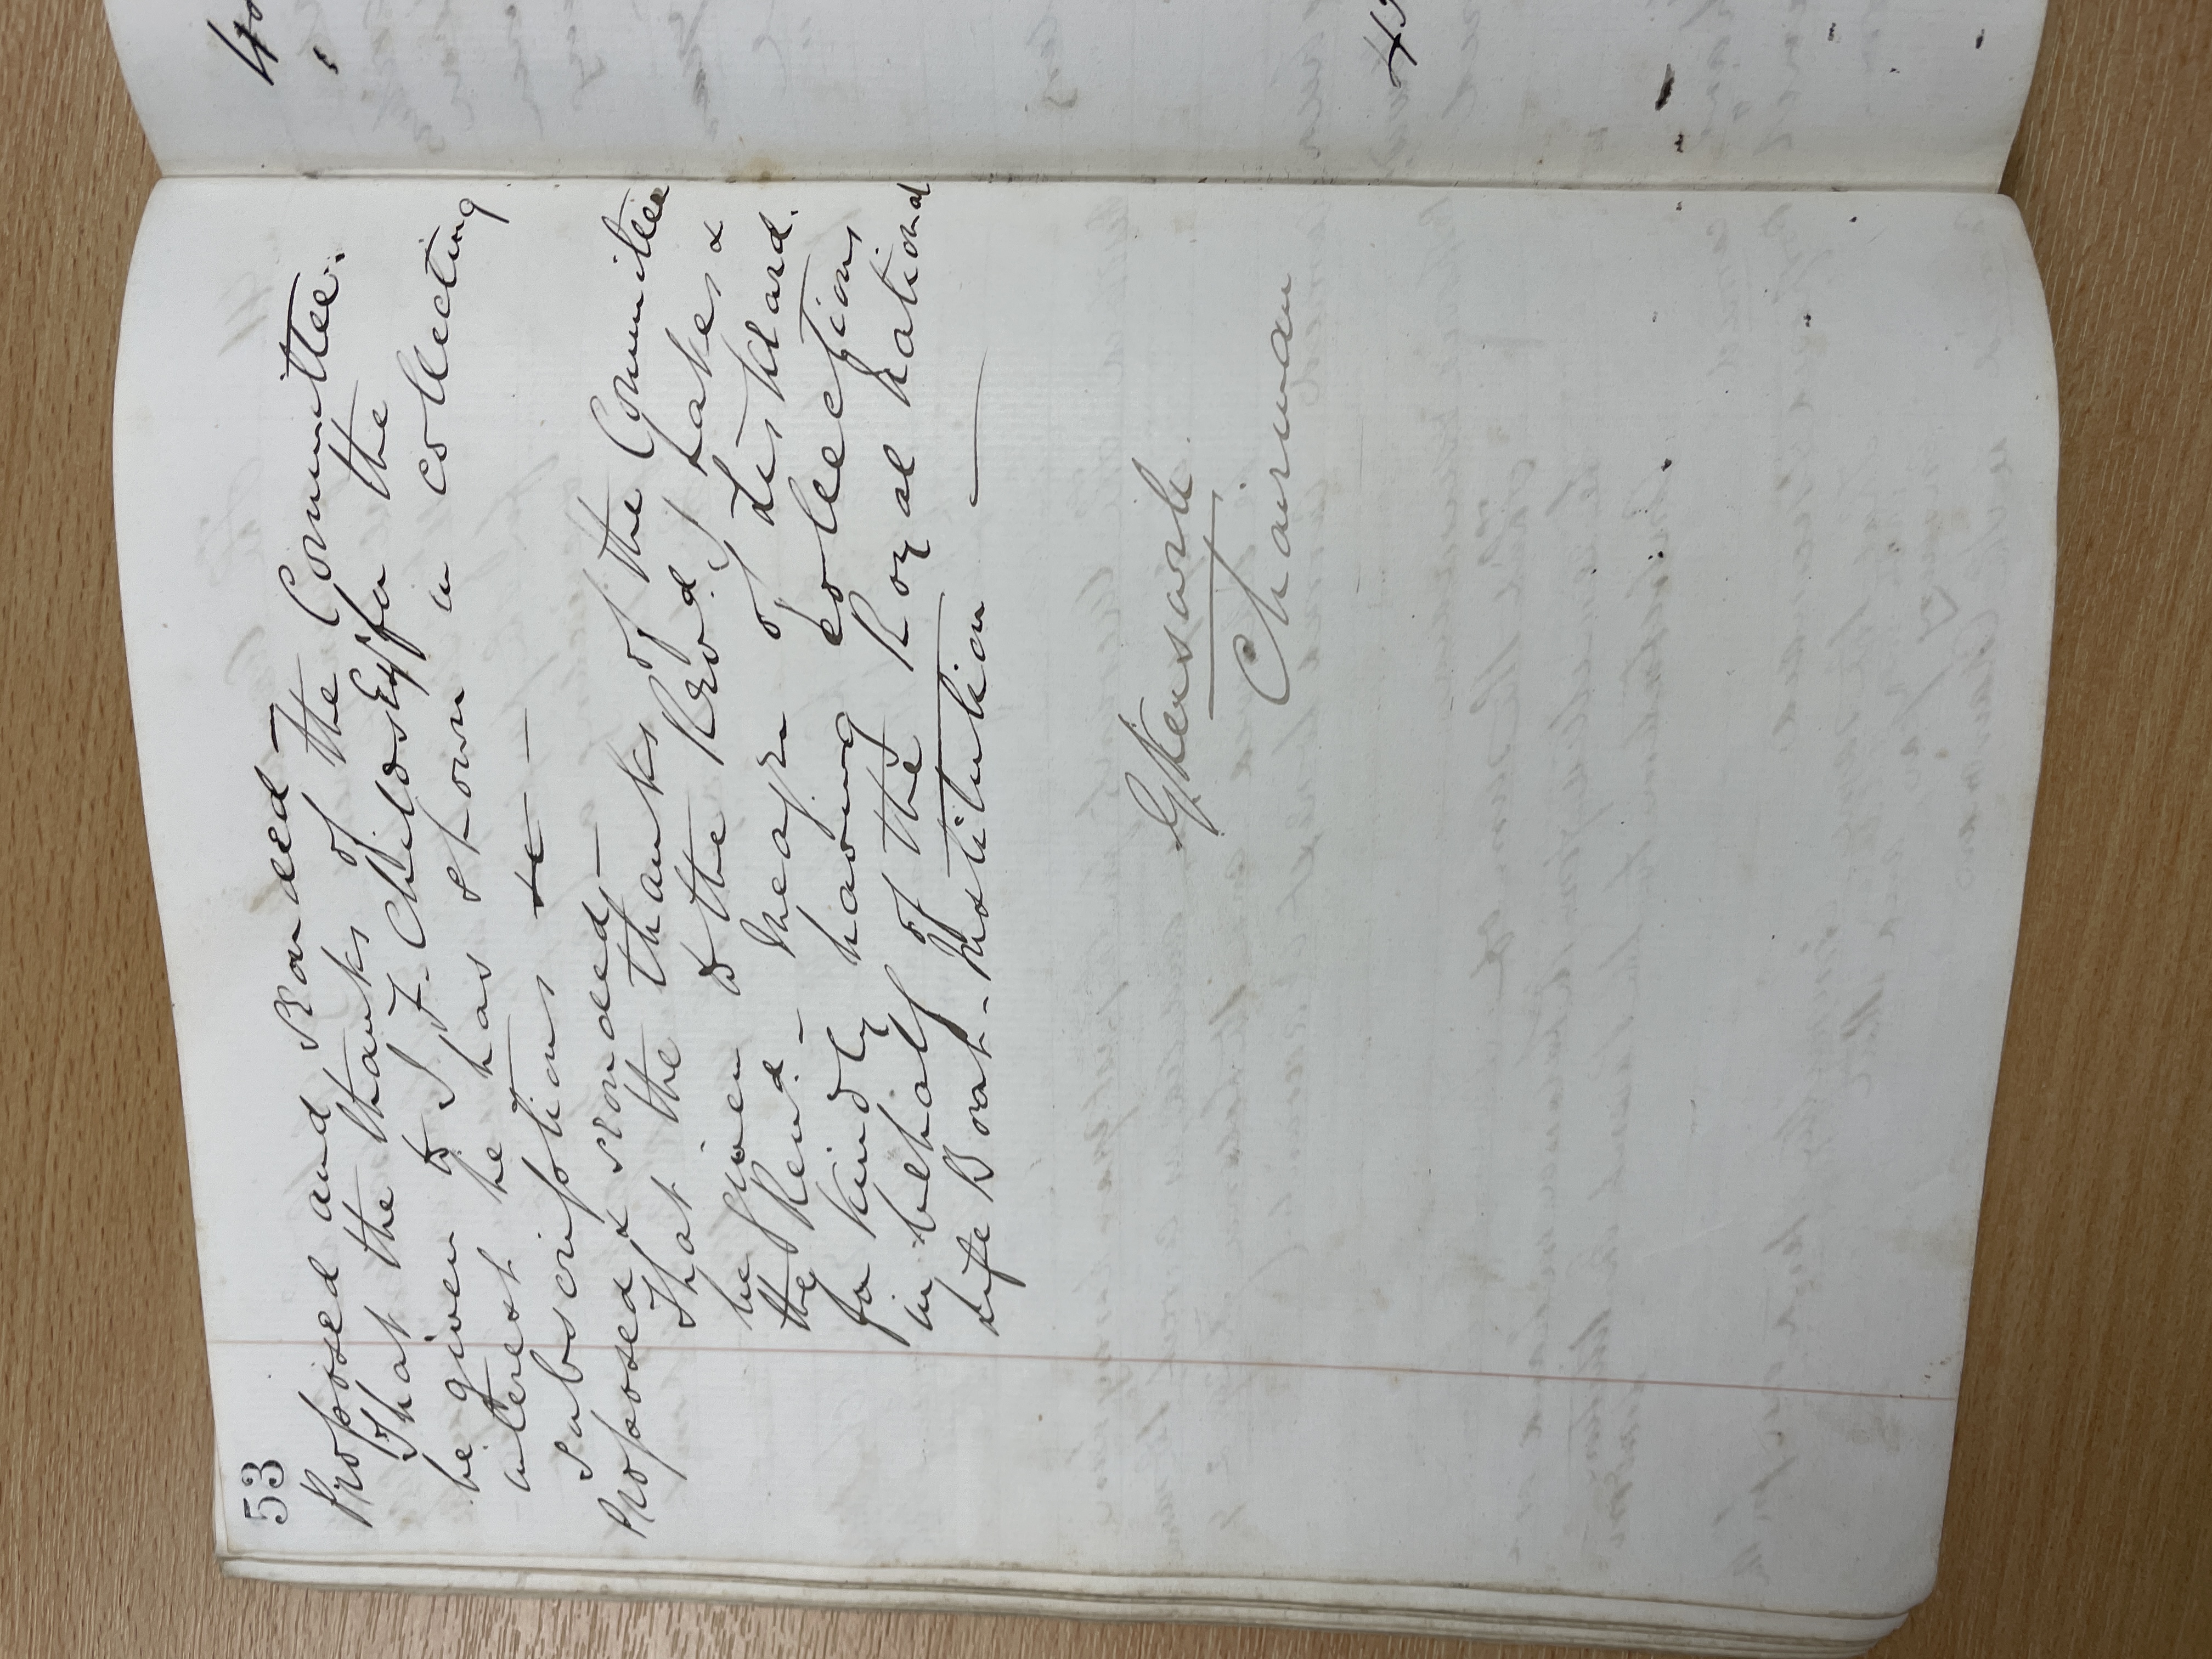 53
Proposed and Seconded –
That the thanks of the Committee.
be given to J. T. Childs Esqr for the
interest he has shown in collecting
subscriptions &c – –
Proposed & seconded –
That the thanks of the Committee
be given to the Revd J Lakes &
the Revd – Meagre of Liskeard.
for kindly having collections
in behalf of the Royal National
Life Boat – Institution —
Chairman